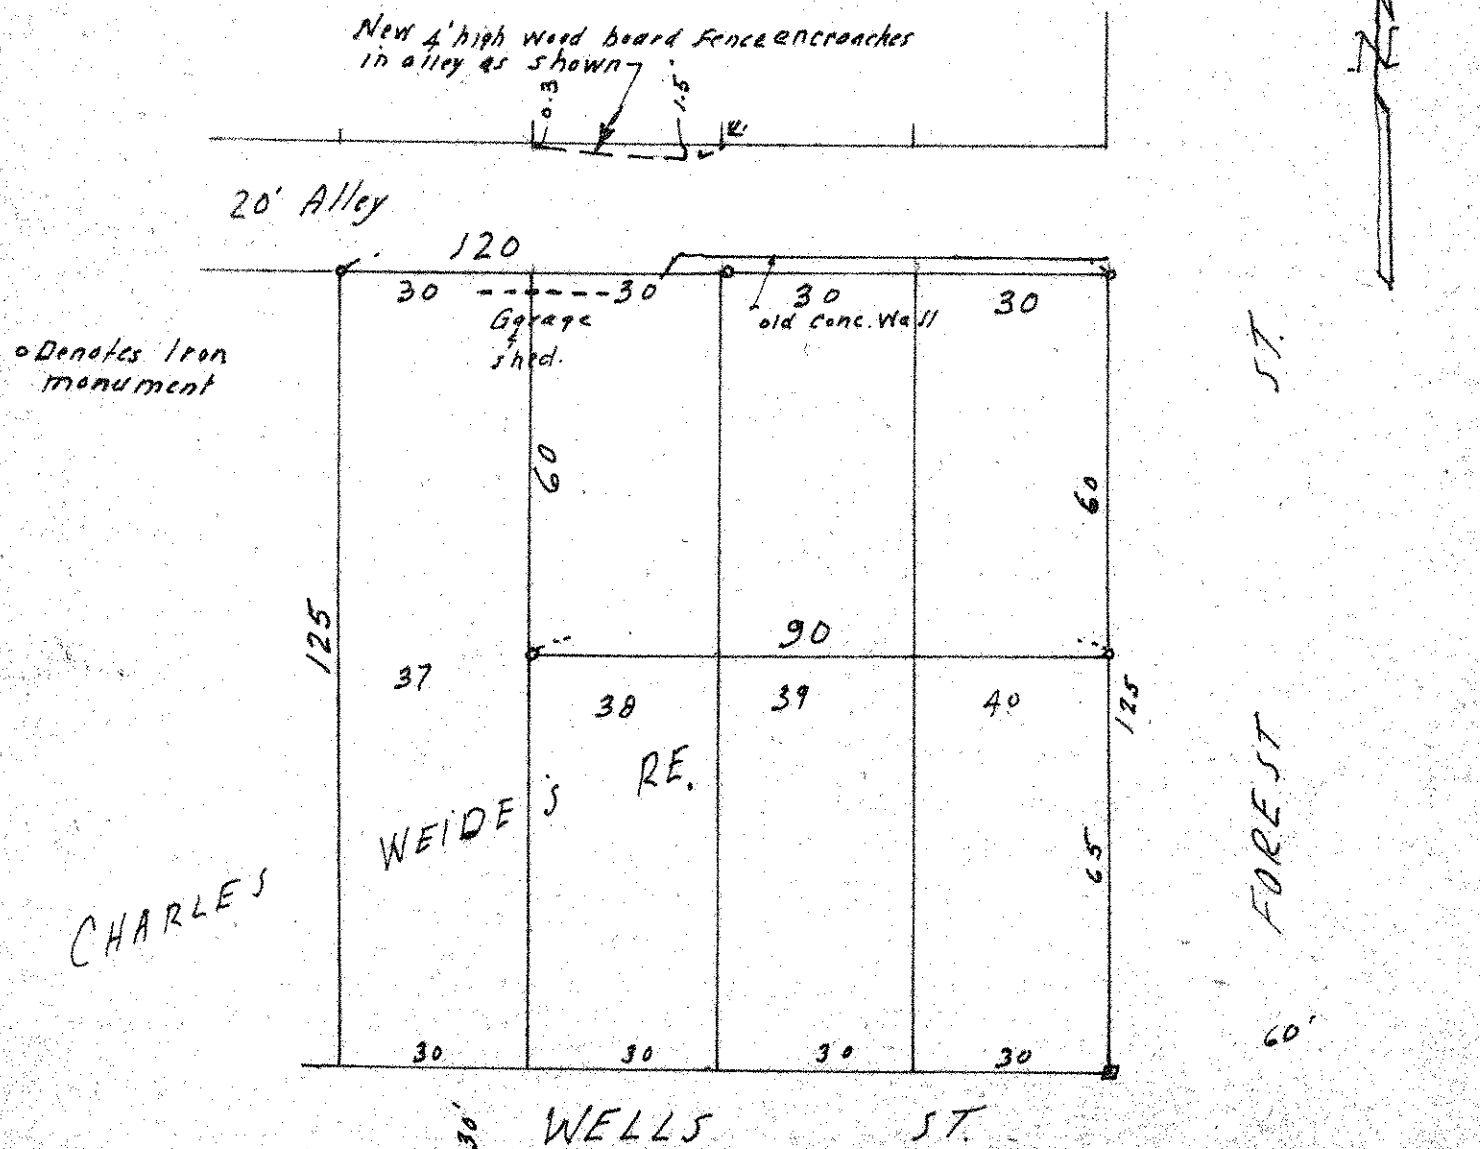 New 4' high wood board fence encroaches
in alley as shown
0.3
1.5'
N
20' Alley
120
30
30
30
30
Garage
&
shed.
old conc. Wall
o Denotes Iron
monument
ST.
60
60
125
90
37
38
39
40
125
CHARLES WEIDE'S RE.
65
FOREST
60'
30
30
30
30
30'
WELLS ST.